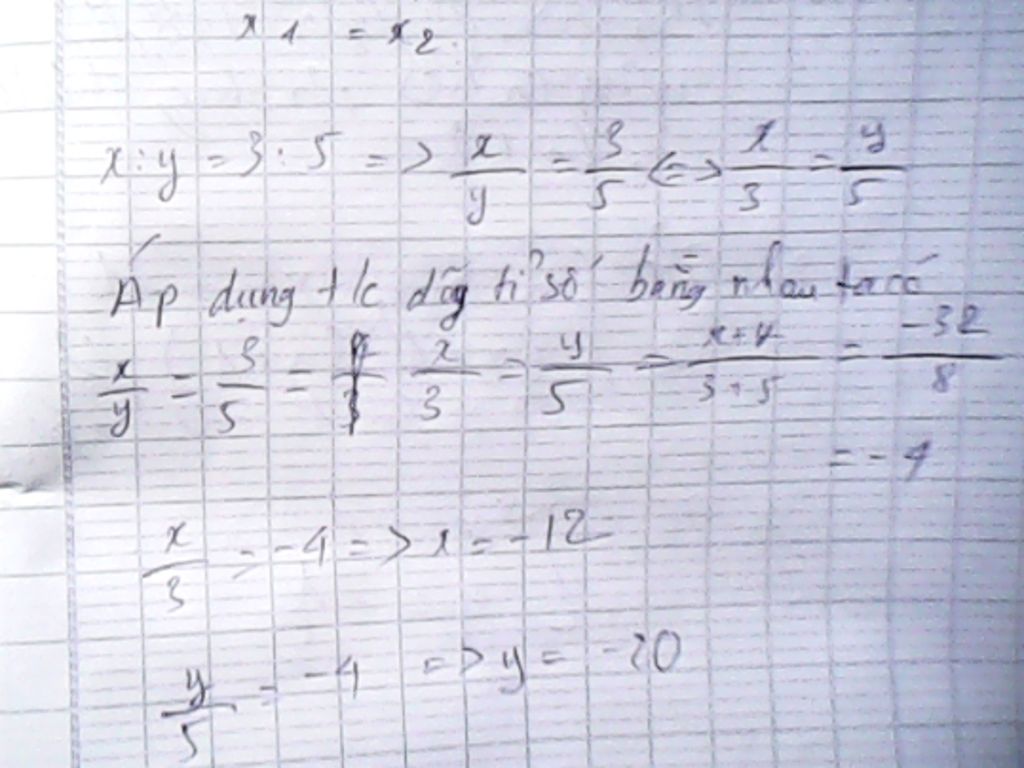 x1 = x2
x : y = 3 : 5 => x/y = 3/5 <=> x/3 = y/5
Áp dụng t/c dãy tỉ số bằng nhau ta có
x/y = 3/5 = x/3 = y/5 = x+y/3+5 = -32/8
= -4
x/3 = -4 => x = -12
y/5 = -4 => y = -20